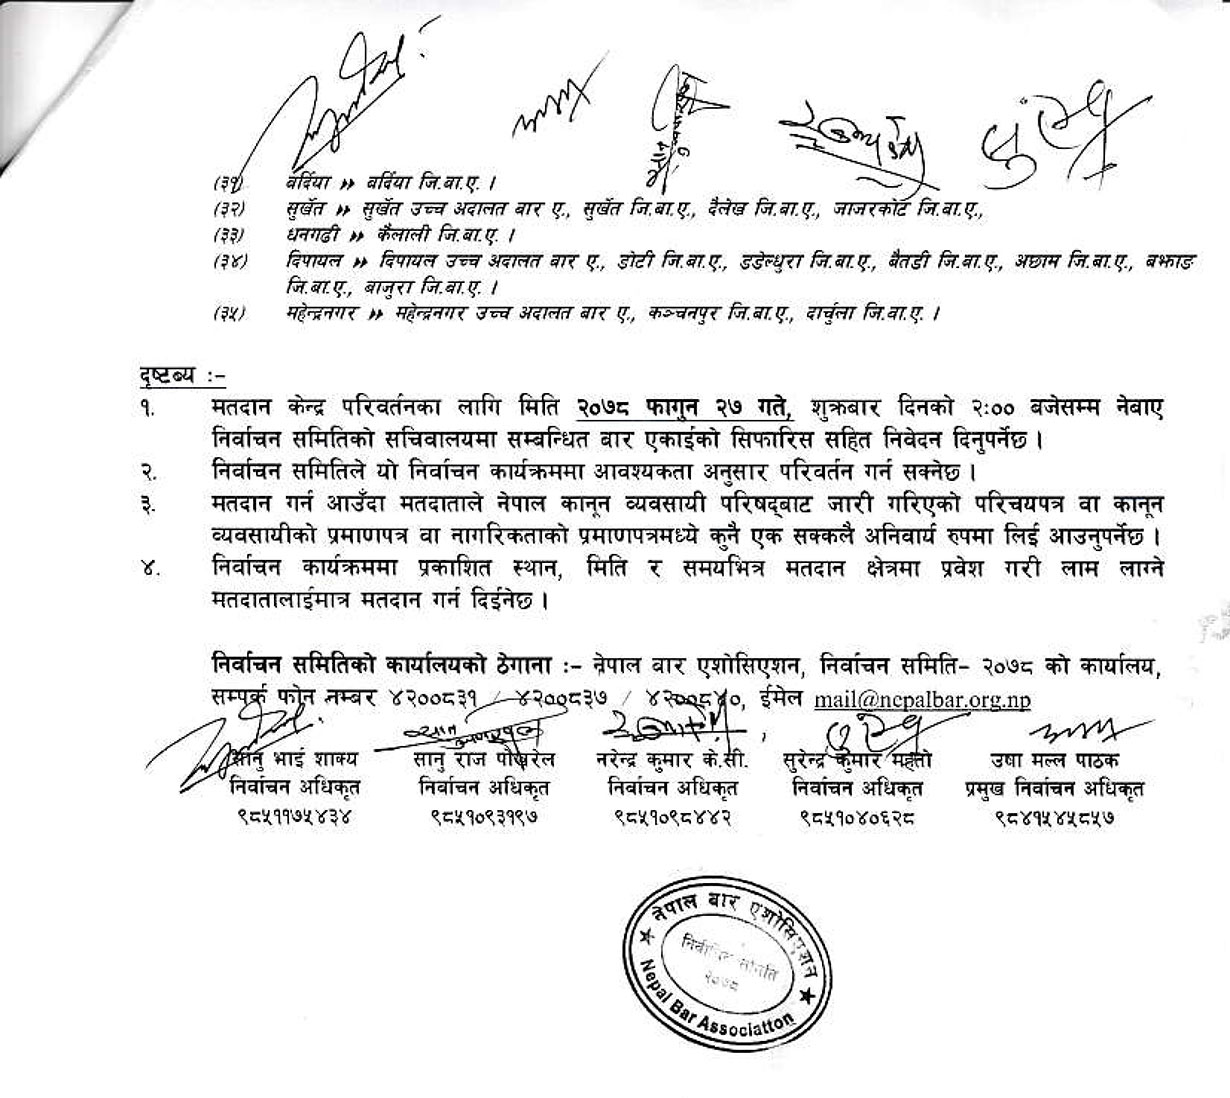 (३१) बर्दिया » बर्दिया जि.बा.ए. ।
(३२) सुर्खेत » सुर्खेत उच्च अदालत बार ए., सुर्खेत जि.बा.ए., दैलेख जि.बा.ए., जाजरकोट जि.बा.ए.,
(३३) धनगढी » कैलाली जि.बा.ए. ।
(३४) दिपायल » दिपायल उच्च अदालत बार ए., डोटी जि.बा.ए., डडेल्धुरा जि.बा.ए., बैतडी जि.बा.ए., अछाम जि.बा.ए., बझाङ
जि.बा.ए., बाजुरा जि.बा.ए. ।
(३५) महेन्द्रनगर » महेन्द्रनगर उच्च अदालत बार ए., कञ्चनपुर जि.बा.ए., दार्चुला जि.बा.ए. ।
दृष्टब्य :-
१. मतदान केन्द्र परिवर्तनका लागि मिति २०७८ फागुन २७ गते, शुक्रबार दिनको २:०० बजेसम्म नेबाए
निर्वाचन समितिको सचिवालयमा सम्बन्धित बार एकाईको सिफारिस सहित निवेदन दिनुपर्नेछ ।
२. निर्वाचन समितिले यो निर्वाचन कार्यक्रममा आवश्यकता अनुसार परिवर्तन गर्न सक्नेछ ।
३. मतदान गर्न आउँदा मतदाताले नेपाल कानून व्यवसायी परिषद्बाट जारी गरिएको परिचयपत्र वा कानून
व्यवसायीको प्रमाणपत्र वा नागरिकताको प्रमाणपत्रमध्ये कुनै एक सक्कलै अनिवार्य रुपमा लिई आउनुपर्नेछ ।
४. निर्वाचन कार्यक्रममा प्रकाशित स्थान, मिति र समयभित्र मतदान क्षेत्रमा प्रवेश गरी लाम लाग्ने
मतदातालाईमात्र मतदान गर्न दिईनेछ ।
निर्वाचन समितिको कार्यालयको ठेगाना :- नेपाल बार एशोसिएशन, निर्वाचन समिति- २०७८ को कार्यालय,
सम्पर्क फोन नम्बर ४२००८३१ / ४२००८३७ / ४२००८४०, ईमेल mail@nepalbar.org.np
सानु भाई शाक्य सानु राज पोखरेल नरेन्द्र कुमार के.सी. सुरेन्द्र कुमार महतो उषा मल्ल पाठक
निर्वाचन अधिकृत निर्वाचन अधिकृत निर्वाचन अधिकृत निर्वाचन अधिकृत प्रमुख निर्वाचन अधिकृत
९८५११७५४३४ ९८५१०९३१९७ ९८५१०९८४४२ ९८५१०४०६२८ ९८४१५४५८५७
नेपाल बार एशोसिएशन
निर्वाचन समिति
२०७८
Nepal Bar Association